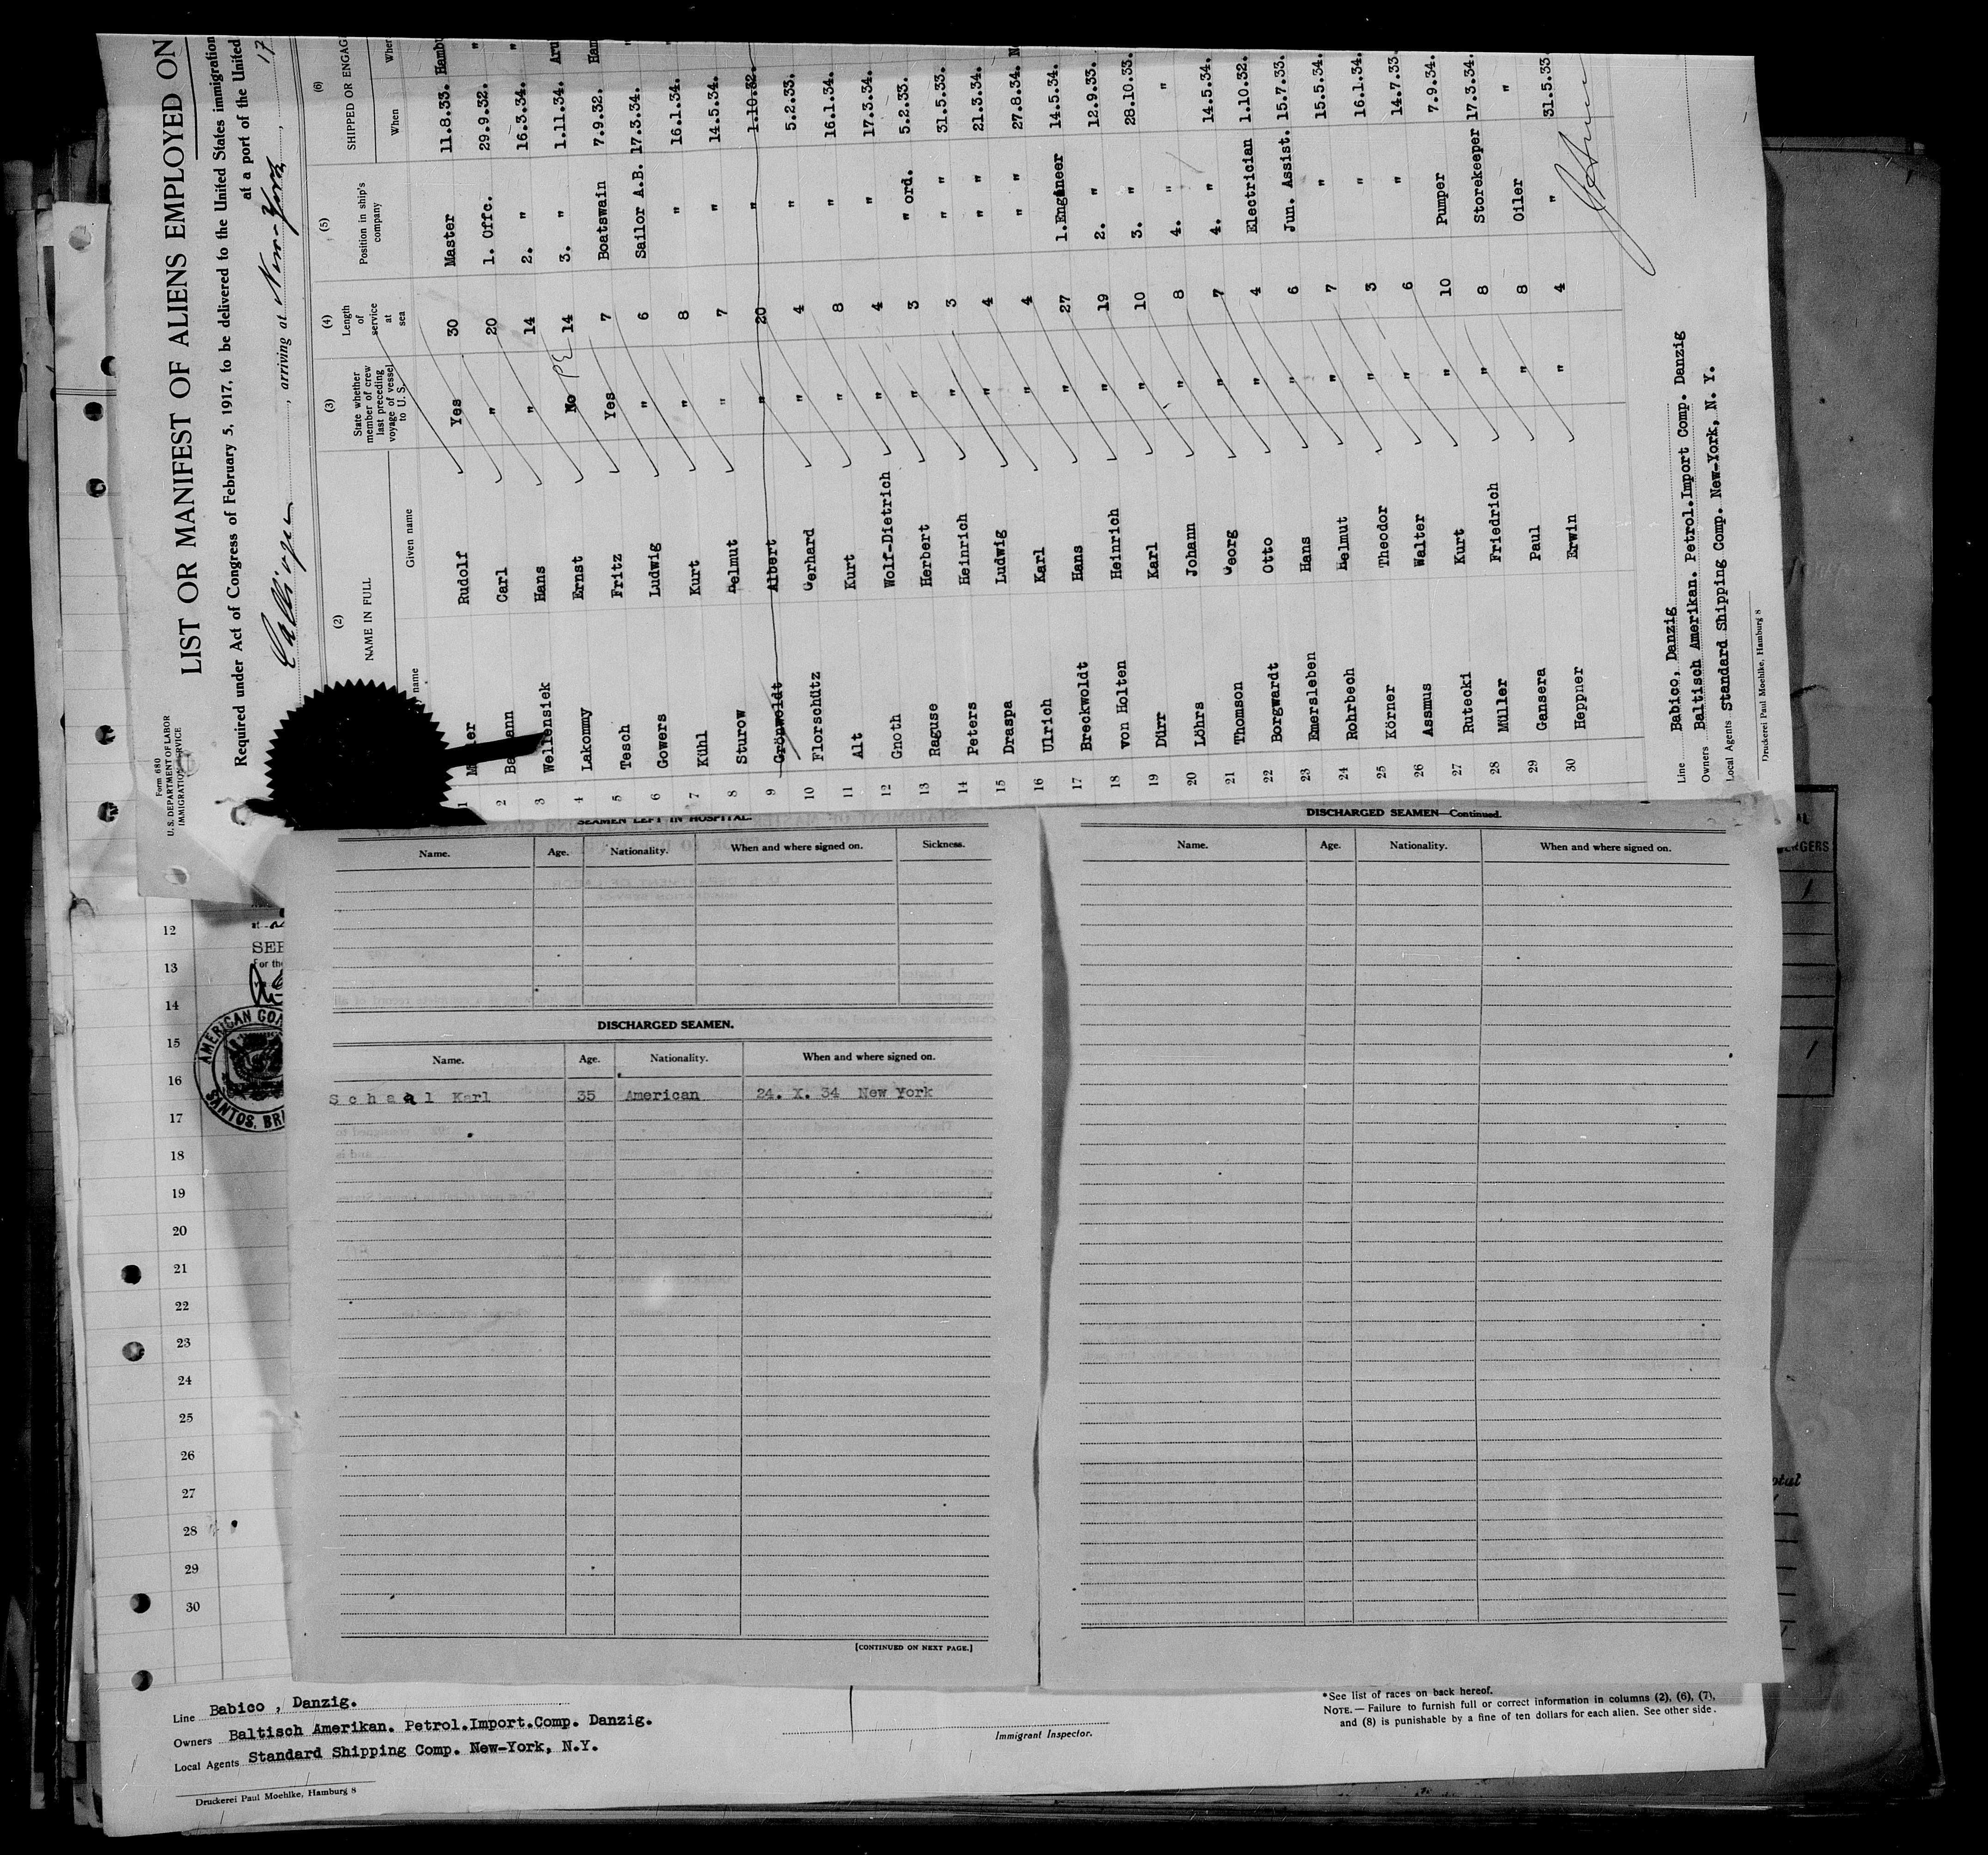 Form 680
U. S. DEPARTMENT OF LABOR
IMMIGRATION SERVICE
LIST OR MANIFEST OF ALIENS EMPLOYED ON
Required under Act of Congress of February 5, 1917, to be delivered to the United States immigration
at a port of the United
arriving at New-York, 17
(2) (3) (4) (5) (6)
NAME IN FULL
name Given name
State whether member of crew last preceding voyage of vessel to U. S.
Length of service at sea
Position in ship's company
SHIPPED OR ENGAG
When Wher
1 Rudolf Yes 30 Master 11.8.33. Hambu
2 Carl " 20 1. Offc. 29.9.32. "
3 Wellensiek Hans " 14 2. " 16.3.34. "
4 Lakommy Ernst No 14 3. " 1.11.34. Aru
5 Tesch Fritz Yes 7 Boatswain 7.9.32. Ham
6 Gowers Ludwig " 6 Sailor A.B. 17.3.34. "
7 Kühl Kurt " 8 " 16.1.34. "
8 Sturow Helmut " 7 " 14.5.34.
9 Grönwoldt Albert " 20 " 1.10.32.
10 Florschütz Gerhard " 4 " 5.2.33.
11 Alt Kurt " 8 " 16.1.34.
12 Gnoth Wolf-Dietrich " 4 " 17.3.34.
13 Raguse Herbert " 3 " ord. 5.2.33.
14 Peters Heinrich " 3 " " 31.5.33.
15 Draspa Ludwig " 4 " " 21.3.34.
16 Ulrich Karl " 4 " " 27.8.34. N
17 Breckwoldt Hans " 27 1.Engeneer 14.5.34.
18 von Holten Heinrich " 19 2. " 12.9.33.
19 Dürr Karl " 10 3. " 28.10.33.
20 Löhrs Johann " 8 4. " "
21 Thomson Georg " 7 4. " 14.5.34.
22 Borgwardt Otto " 4 Electrician 1.10.32.
23 Emersleben Hans " 6 Jun. Assist. 15.7.33.
24 Rohrbech Helmut " 7 " 15.5.34.
25 Körner Theodor " 3 " 16.1.34.
26 Assmus Walter " 6 " 14.7.33.
27 Rutecki Kurt " 10 Pumper 7.9.34.
28 Müller Friedrich " 8 Storekeeper 17.3.34.
29 Gansera Paul " 8 Oiler "
30 Heppner Erwin " 4 " 31.5.33
Line Babico, Danzig
Owners Baltisch Amerikan. Petrol.Import Comp. Danzig
Local Agents Standard Shipping Comp. New-York, N. Y.
Druckerei Paul Moehlke, Hamburg 8
SEAMEN LEFT IN HOSPITAL.
Name. Age. Nationality. When and where signed on. Sickness.
DISCHARGED SEAMEN.
Name. Age. Nationality. When and where signed on.
Schaal Karl 35 American 24. X. 34 New York
[CONTINUED ON NEXT PAGE.]
DISCHARGED SEAMEN—Continued.
Name. Age. Nationality. When and where signed on.
12
13
14
15
16
17
18
19
20
21
22
23
24
25
26
27
28
29
30
SANTOS,
Line Babico , Danzig.
Owners Baltisch Amerikan. Petrol.Import.Comp. Danzig.
Local Agents Standard Shipping Comp. New-York, N.Y.
Druckerei Paul Moehlke, Hamburg 8
Immigrant Inspector.
*See list of races on back hereof.
NOTE.—Failure to furnish full or correct information in columns (2), (6), (7),
and (8) is punishable by a fine of ten dollars for each alien. See other side.